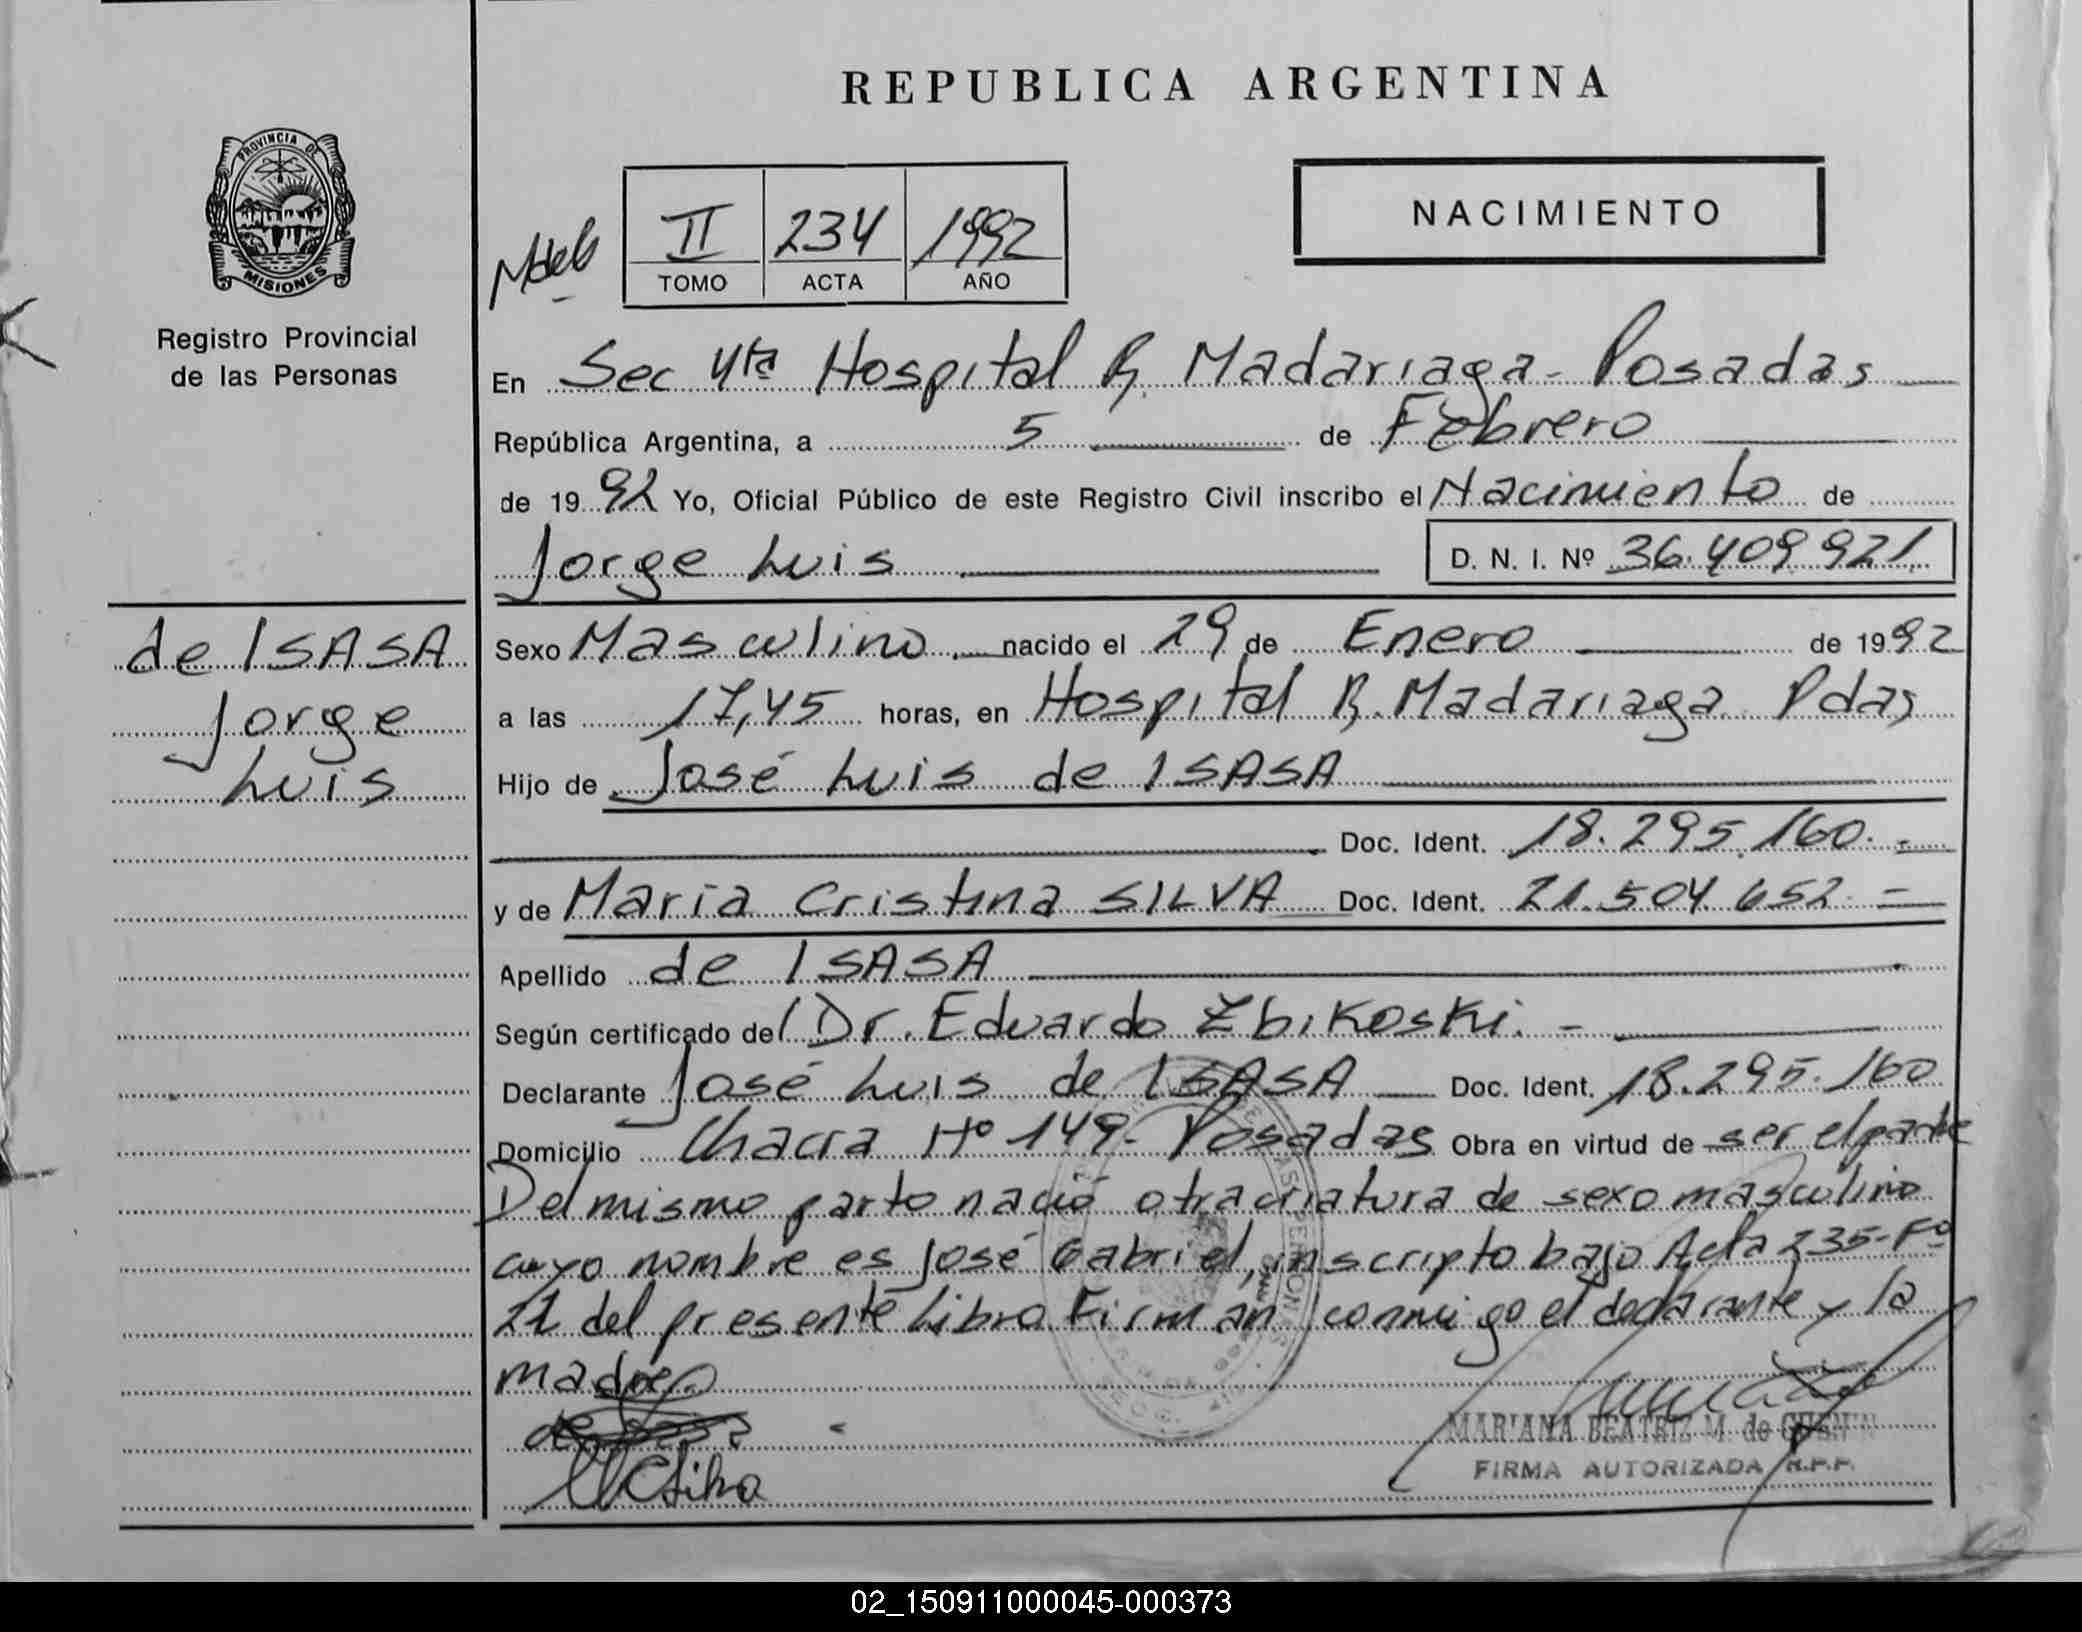 REPUBLICA ARGENTINA
PROVINCIA DE
MISIONES
Registro Provincial
de las Personas
II 234 1992
TOMO ACTA AÑO
NACIMIENTO
En Sec 4ta Hospital R. Madariaga - Posadas
República Argentina, a 5 de Febrero
de 1992 Yo, Oficial Público de este Registro Civil inscribo el Nacimiento de
Jorge Luis D. N. I. Nº 36.409.921
de ISASA
Jorge
Luis
Sexo Masculino nacido el 29 de Enero de 1992
a las 17,45 horas, en Hospital R. Madariaga Pdas
Hijo de José Luis de ISASA
Doc. Ident. 18.295.160.-
y de Maria Cristina SILVA Doc. Ident. 21.504.652.=
Apellido de ISASA
Según certificado del Dr. Eduardo Zbikoski.-
Declarante José Luis de ISASA Doc. Ident. 18.295.160
Domicilio Chacra Nº 149- Posadas Obra en virtud de ser el padre
Del mismo parto nació otra criatura de sexo masculino
cuyo nombre es José Gabriel, inscripto bajo Acta 235-Fº
22 del presente Libro. Firman conmigo el declarante y la
madre
MARIANA BEATRIZ M. de
FIRMA AUTORIZADA R.P.P.
02_150911000045-000373